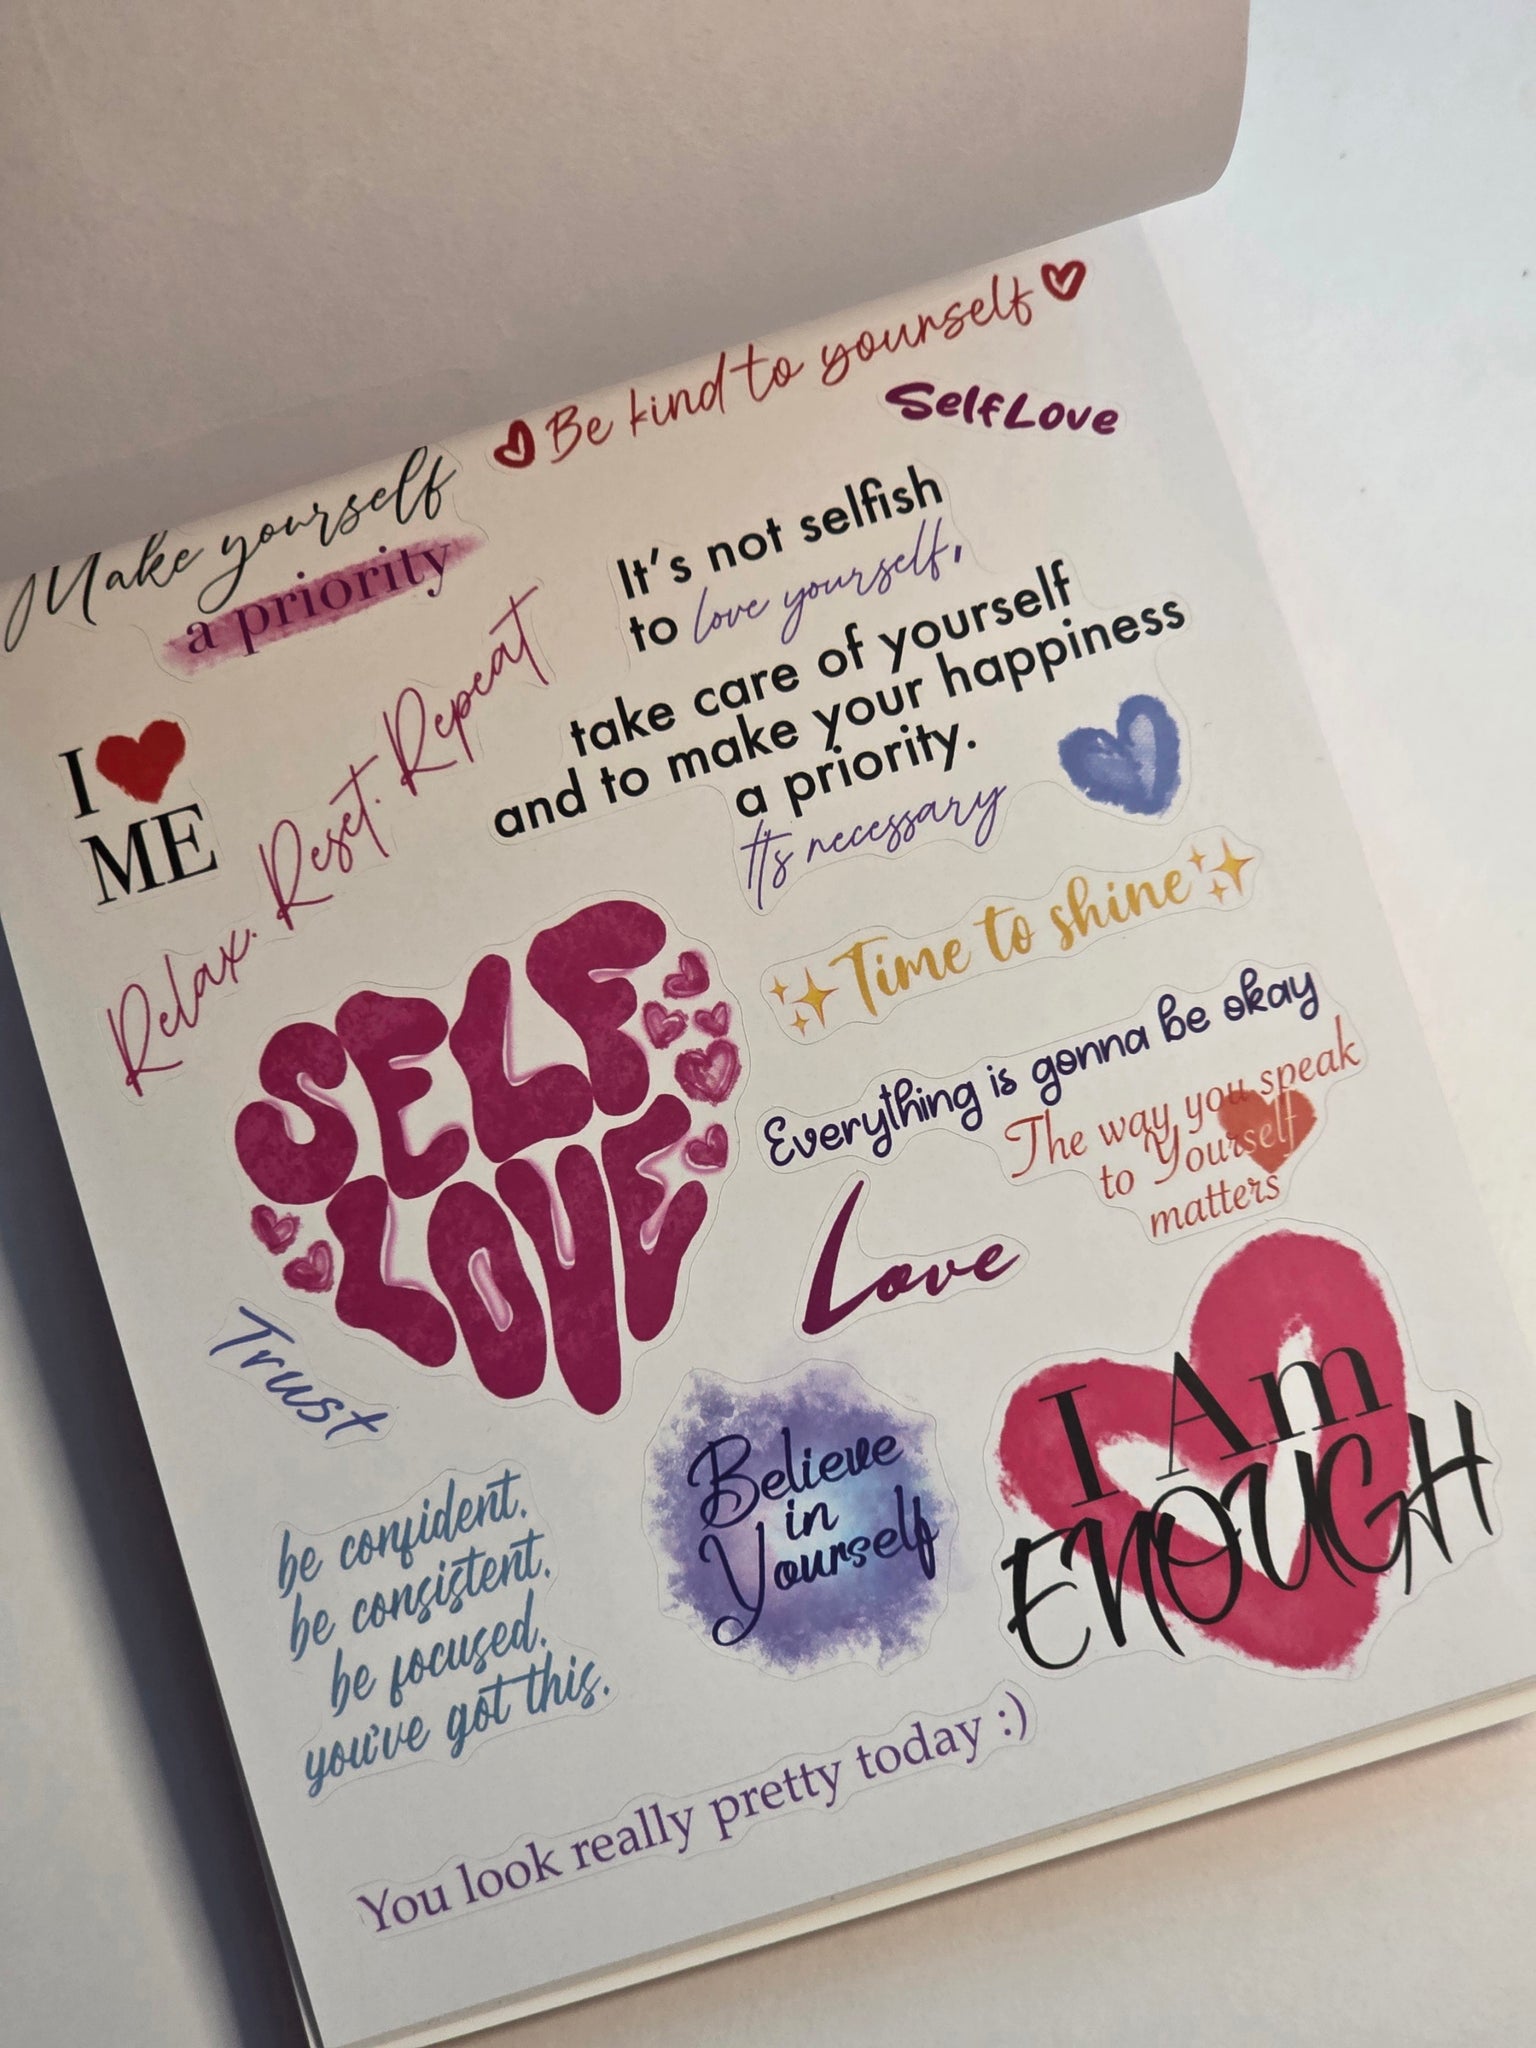 Be kind to yourself
Self Love
Make yourself
a priority
It's not selfish
to love yourself,
take care of yourself
and to make your happiness
a priority.
It's necessary
I
ME
Relax. Reset. Repeat
Time to shine
SELF
LOVE
Everything is gonna be okay
The way you speak
to Yourself
matters
Love
Trust
I Am
ENOUGH
Believe
in
Yourself
be confident.
be consistent.
be focused.
you've got this.
You look really pretty today :)